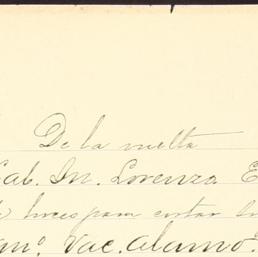 De la vuelta
Gab. In. Lorenzo E
luces para cortar
an°. Vac. Alamo.